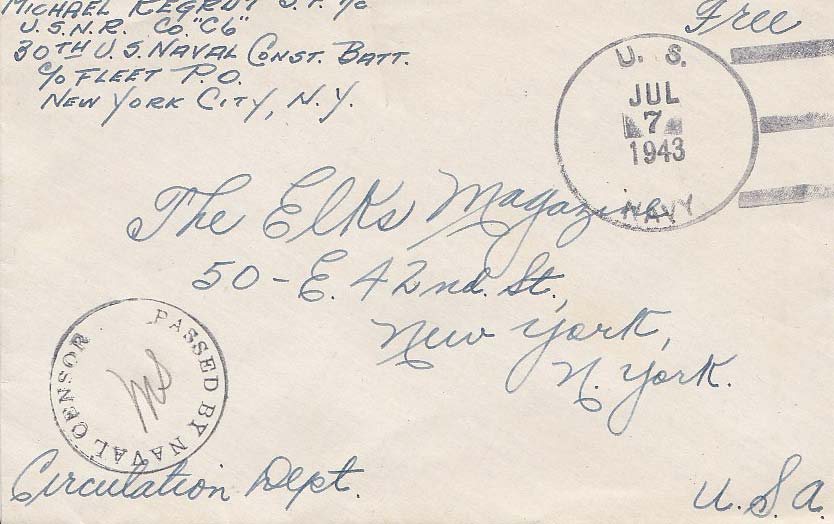 MICHAEL REGRUT
U.S.N.R. Co. "C6"
30TH U.S. NAVAL CONST. BATT.
c/o FLEET P.O.
NEW YORK CITY, N.Y.
Free
U. S.
JUL
7
1943
NAVY
The Elks Magazine
50 - E. 42nd. St.,
New York,
N. York.
PASSED BY NAVAL CENSOR
ms
Circulation Dept.
U.S.A.